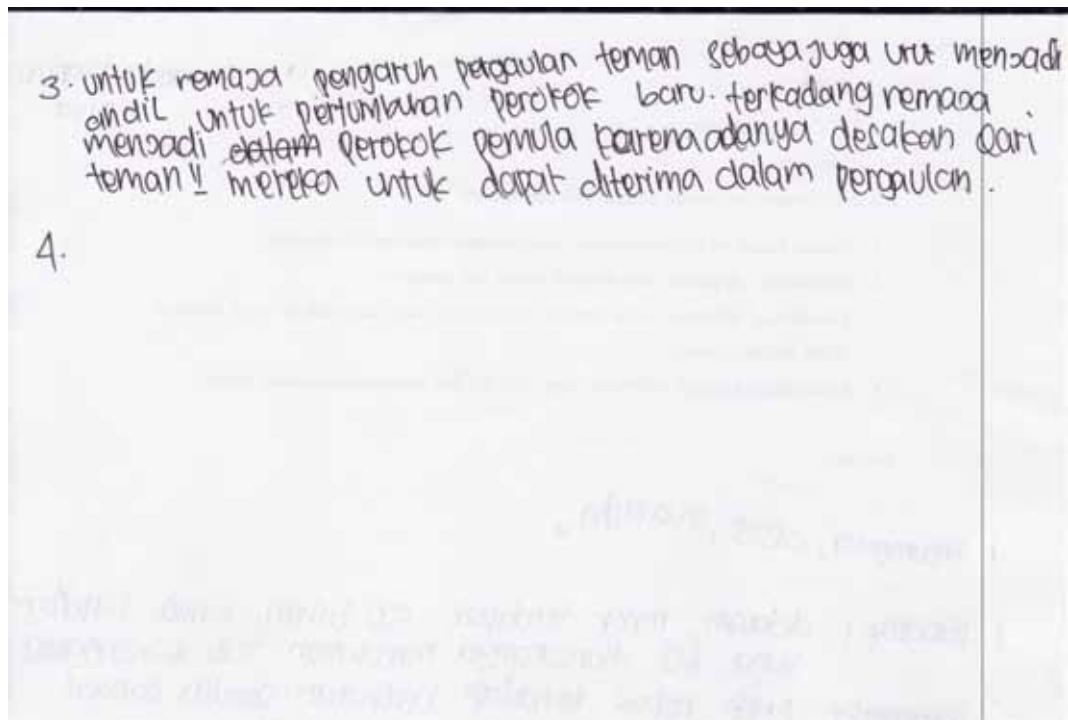 3. untuk remaja pengaruh pergaulan teman sebaya juga urut menjadi
andil untuk pertumbuhan perokok baru. terkadang remaja
menjadi dalam perokok pemula karena adanya desakan dari
teman" mereka untuk dapat diterima dalam pergaulan.
4.